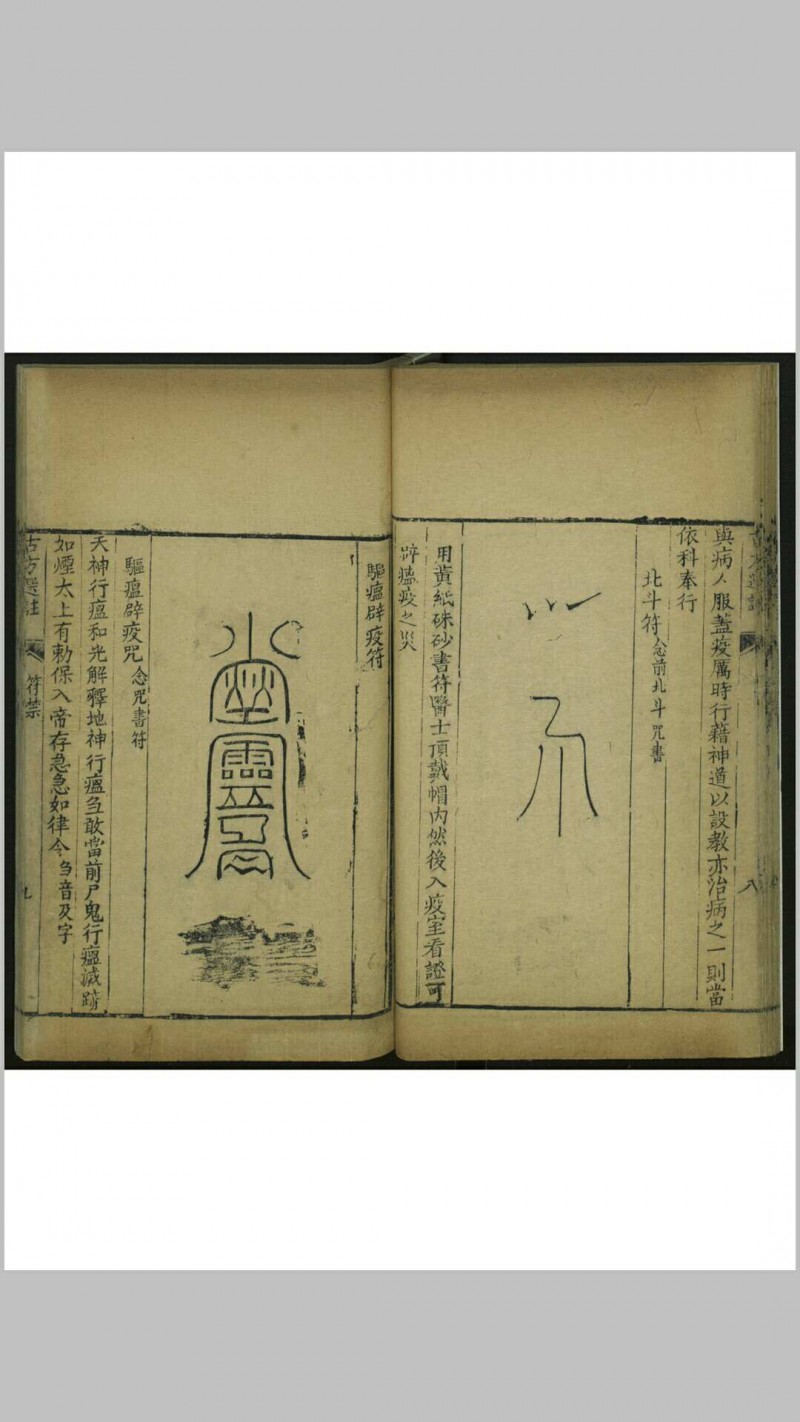 與病人服蓋疫厲時行藉神道以設教亦治病之一則當
依科奉行
北斗符 念前北斗咒書
用黃紙硃砂書符醫士頂戴帽内然後入疫室看證可
辟瘟疫之災
八
驅瘟辟疫符
驅瘟辟疫咒 念咒書符
天神行瘟和光解釋地神行瘟刍敢當前尸鬼行瘟滅跡
如煙太上有勅保入帝存急急如律令 刍音及字
古方選註 符禁 九